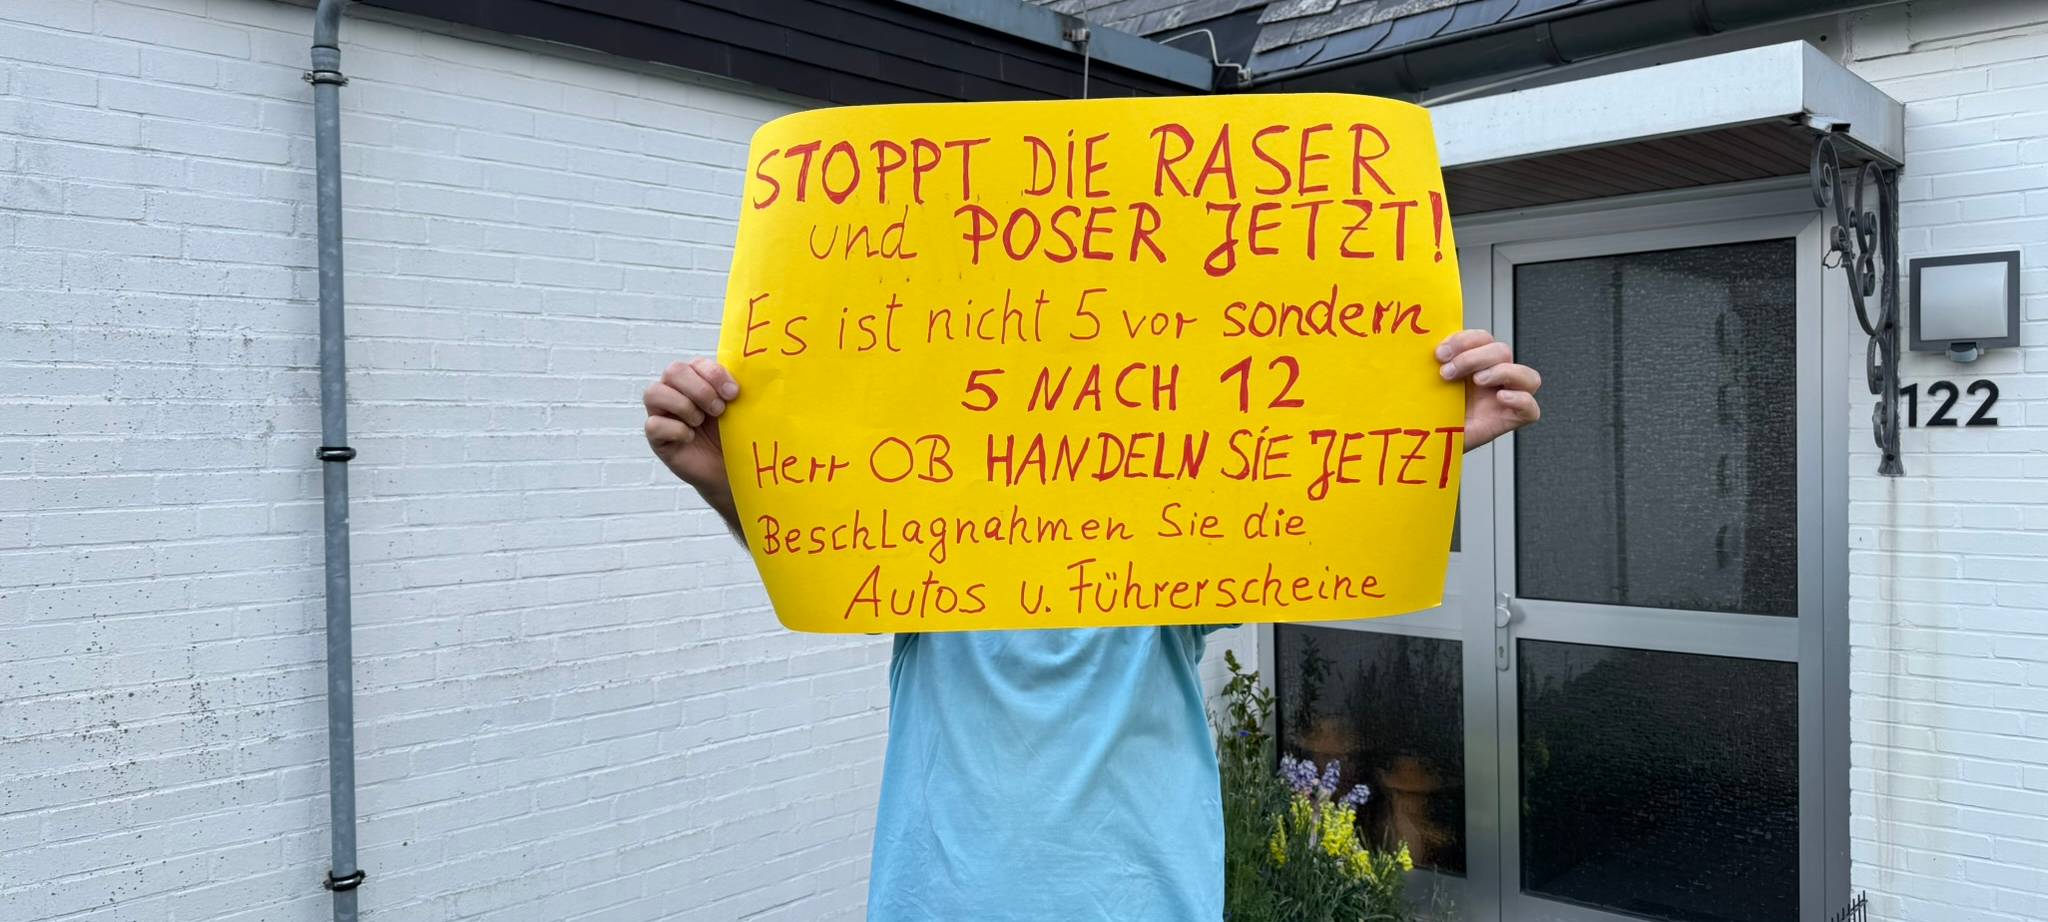 STOPPT DIE RASER
und POSER JETZT!
Es ist nicht 5 vor sondern
5 NACH 12
Herr OB HANDELN SIE JETZT
Beschlagnahmen Sie die
Autos u. Führerscheine
122